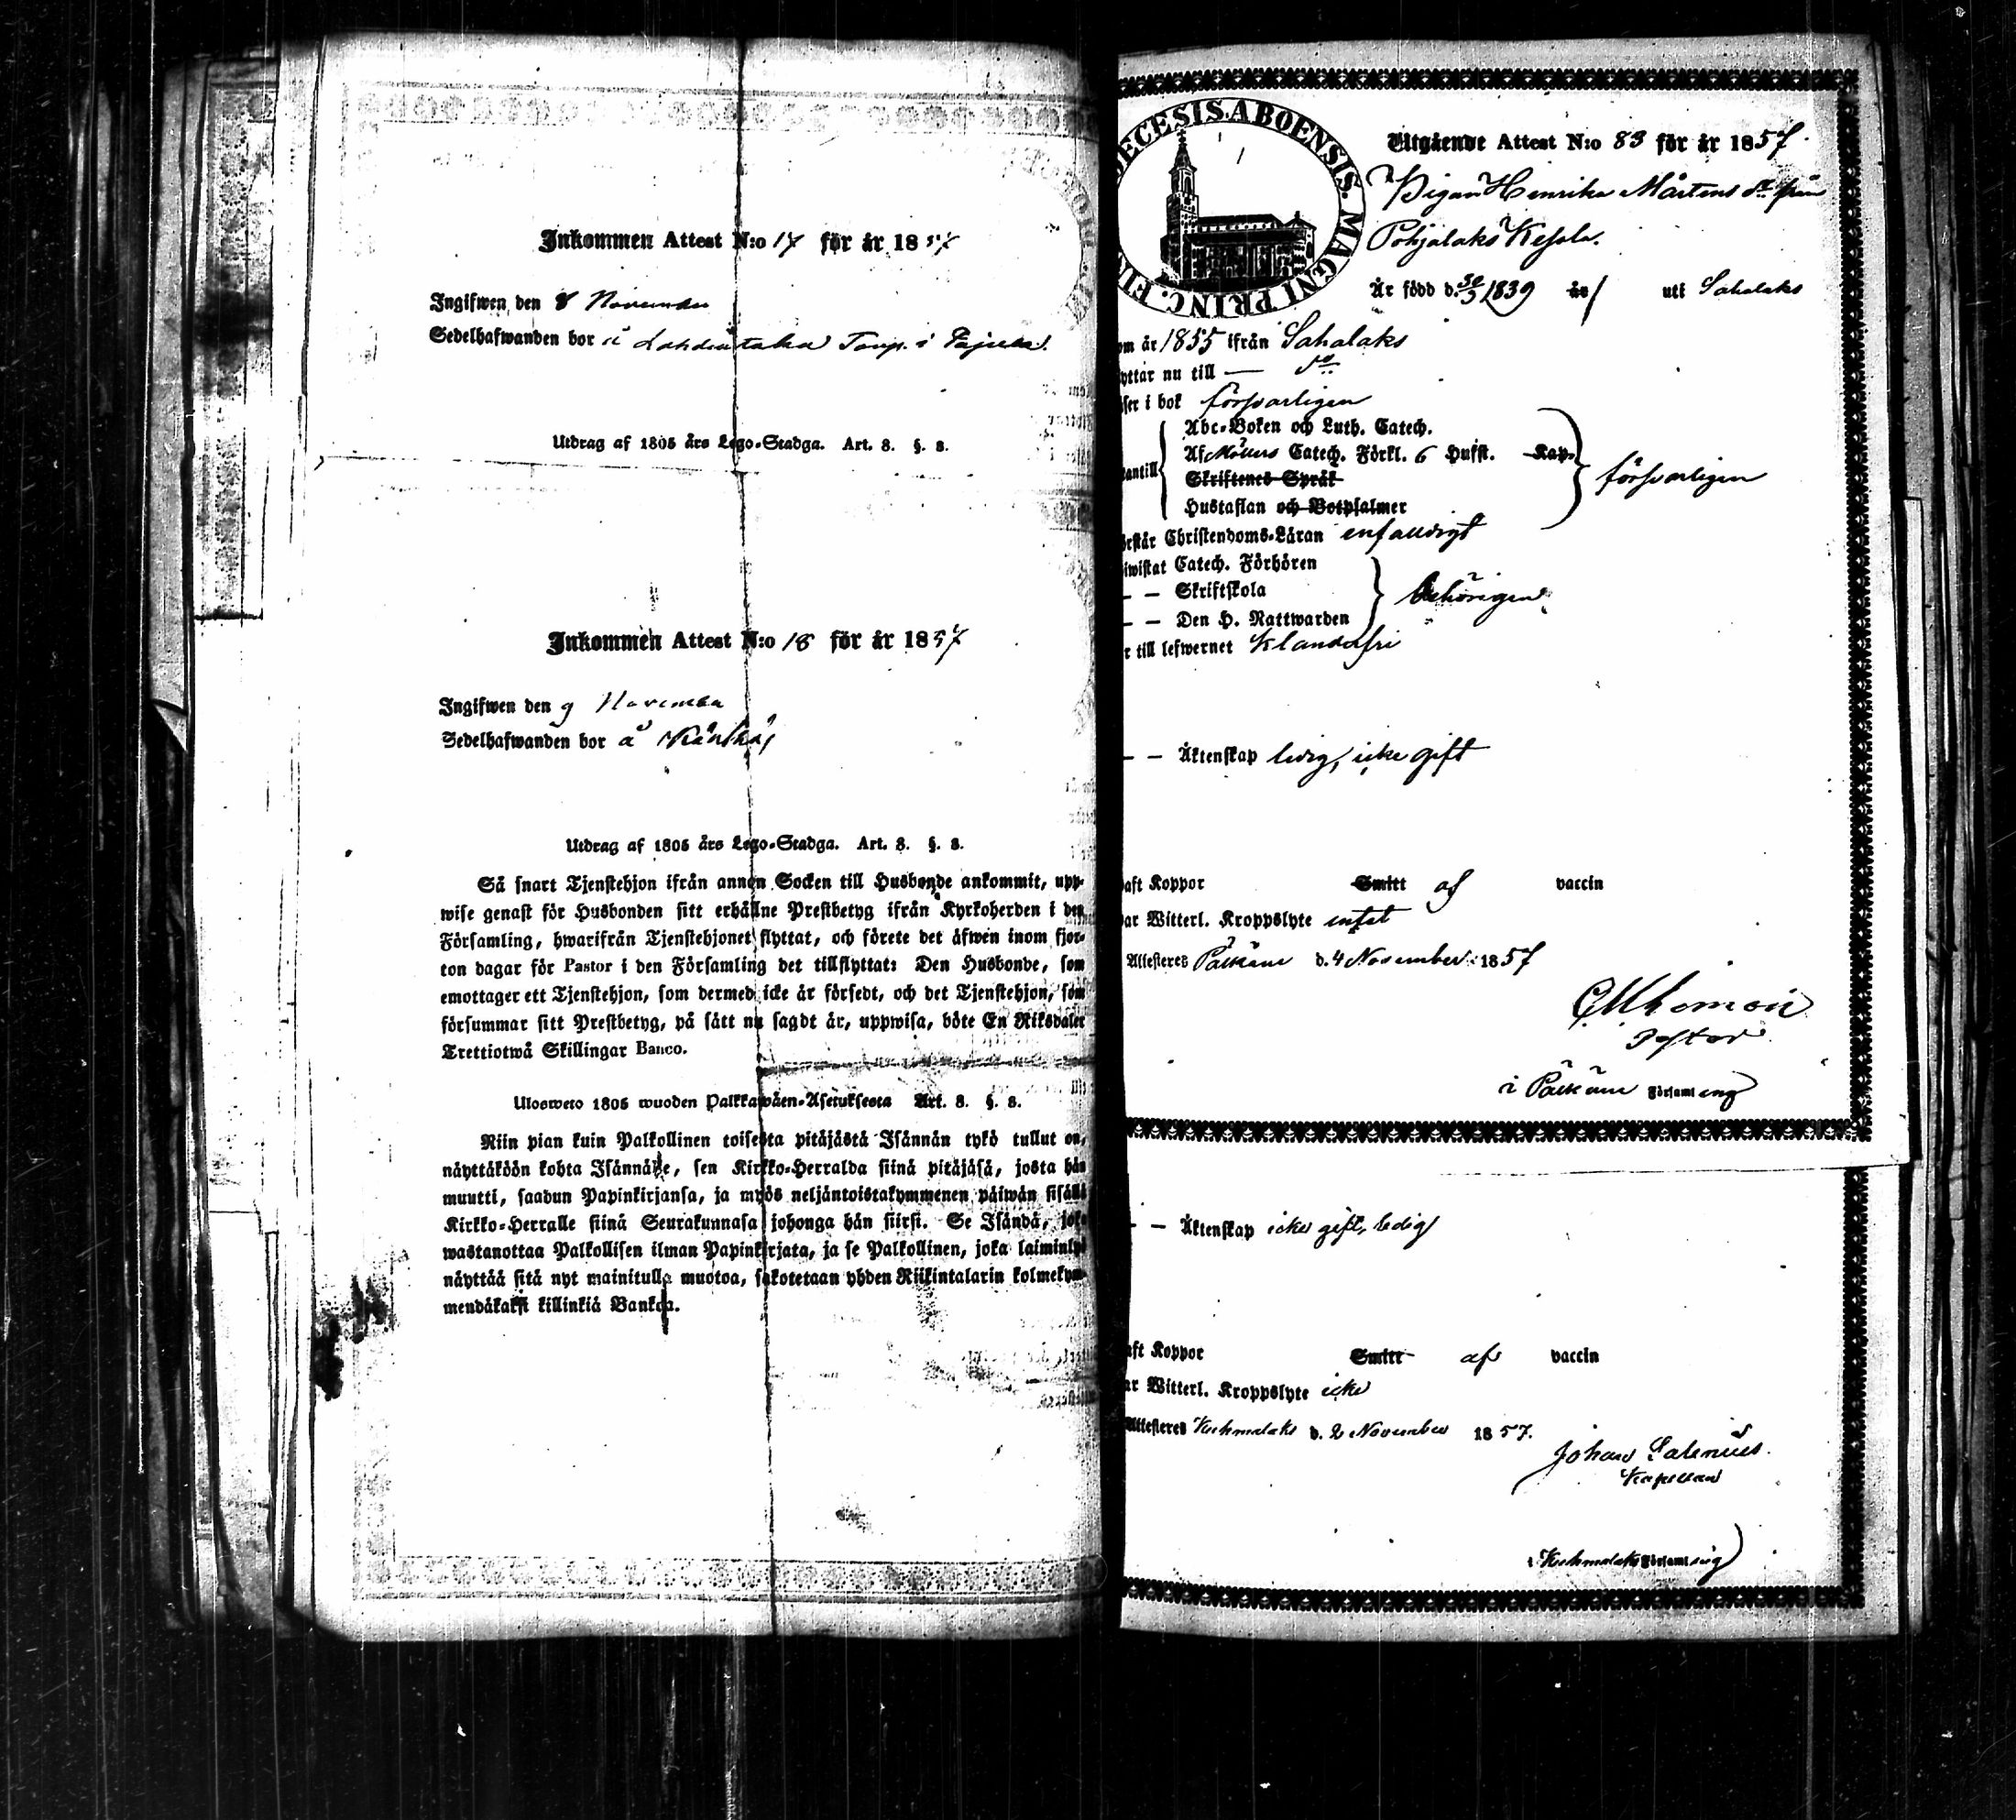 Inkommen Attest N:o 17 för år 1857
Ingifwen den 8 November
Sedelhafwanden bor å Lahdentaka Torp. i
Utdrag af 1805 års Lego-Stadga. Art. 8. §. 8.
Inkommen Attest N:o 18 för år 1857
Ingifwen den 9 November
Sedelhafwanden bor å
Utdrag af 1805 års Lego-Stadga. Art. 8. §. 8.
Så snart Tjenstehjon ifrån annan Socken till Husbonde ankommit, upp-
wise genast för Husbonden sitt erhållne Prestbetyg ifrån Kyrkoherden i den
Församling, hwarifrån Tjenstehjonet flyttat, och förete det åfwen inom fjor-
ton dagar för Pastor i den Församling det tillflyttat: Den Husbonde, som
emottager ett Tjenstehjon, som dermed icke är försedt, och det Tjenstehjon, som
försummar sitt Prestbetyg, på sätt nu sagdt är, uppwisa, böte En Riksdaler
Trettiotwå Skillingar Banco.
Ulosweto 1805 wuoden Palkkawäen-Asetuksesta Art. 8. §. 8.
Niin pian kuin Palkollinen toisesta pitäjästä Isännän tykö tullut on,
näyttäköön kohta Isännälle, sen Kirkko-Herralda siinä pitäjäsä, josta hän
muutti, saadun Papinkirjansa, ja myös neljäntoistakymmenen päiwän sisällä
Kirkko-Herralle siinä Seurakunnasa johonga hän siirsi. Se Isändä, joka
wastanottaa Palkollisen ilman Papinkirjata, ja se Palkollinen, joka laiminlyö
näyttää sitä nyt mainitulla muotoa, sakotetaan yhden Riikintalarin kolmekym-
mendäkaksi killinkiä Bankoa.
ECESIS.ABOENSIS. MAGNI PRINC. FI
Utgående Attest N:o 83 för år 1857.
Pigan Henrika Mårtens dr från
Pohjalaks Kesola.
Är född d. 30/3 1839 år uti Sahalaks
om år 1855 ifrån Sahalaks
yttar nu till — do
äser i bok försvarligen
Abc-Boken och Luth. Catech.
Af Möllers Catech. Förkl. 6 Hufst. Kap.
antill Skriftenes Språk försvarligen
Hustaflan och Botpsalmer
örstår Christendoms-Läran enfaldigt
iwistat Catech. Förhören
— — Skriftskola behörigen
— — Den H. Nattwarden
r till lefwernet klanderfri
— — Äktenskap ledig, icke gift
aft Koppor Smitt af vaccin
ar Witterl. Kroppslyte intet
Attesteres Pälkäne d. 4 November 1857
Pastor
i Pälkäne Församling
— — Äktenskap icke gift, ledig
aft Koppor Smitt af vaccin
ar Witterl. Kroppslyte icke
Attesteres Kuhmalaks d. 2 November 1857.
Johan Salenius.
Kapellan
i Kuhmalaks Församling